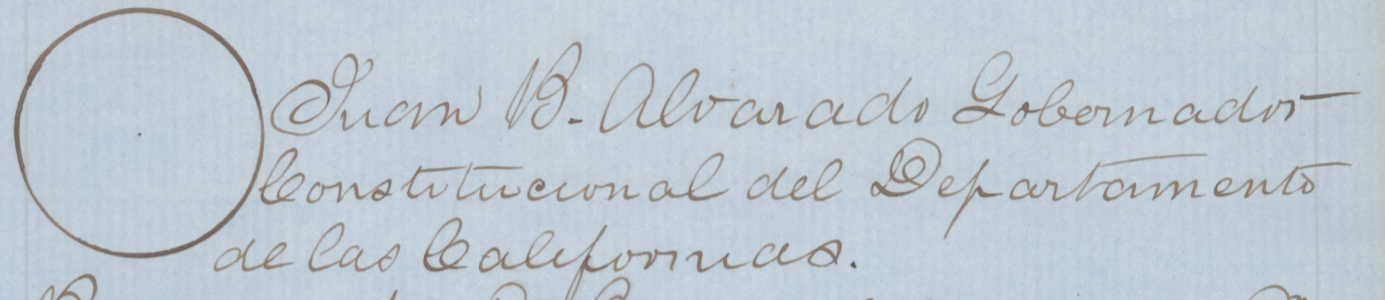 Juan B. Alvarado Gobernador
Constitucional del Departamento
de las Californias.